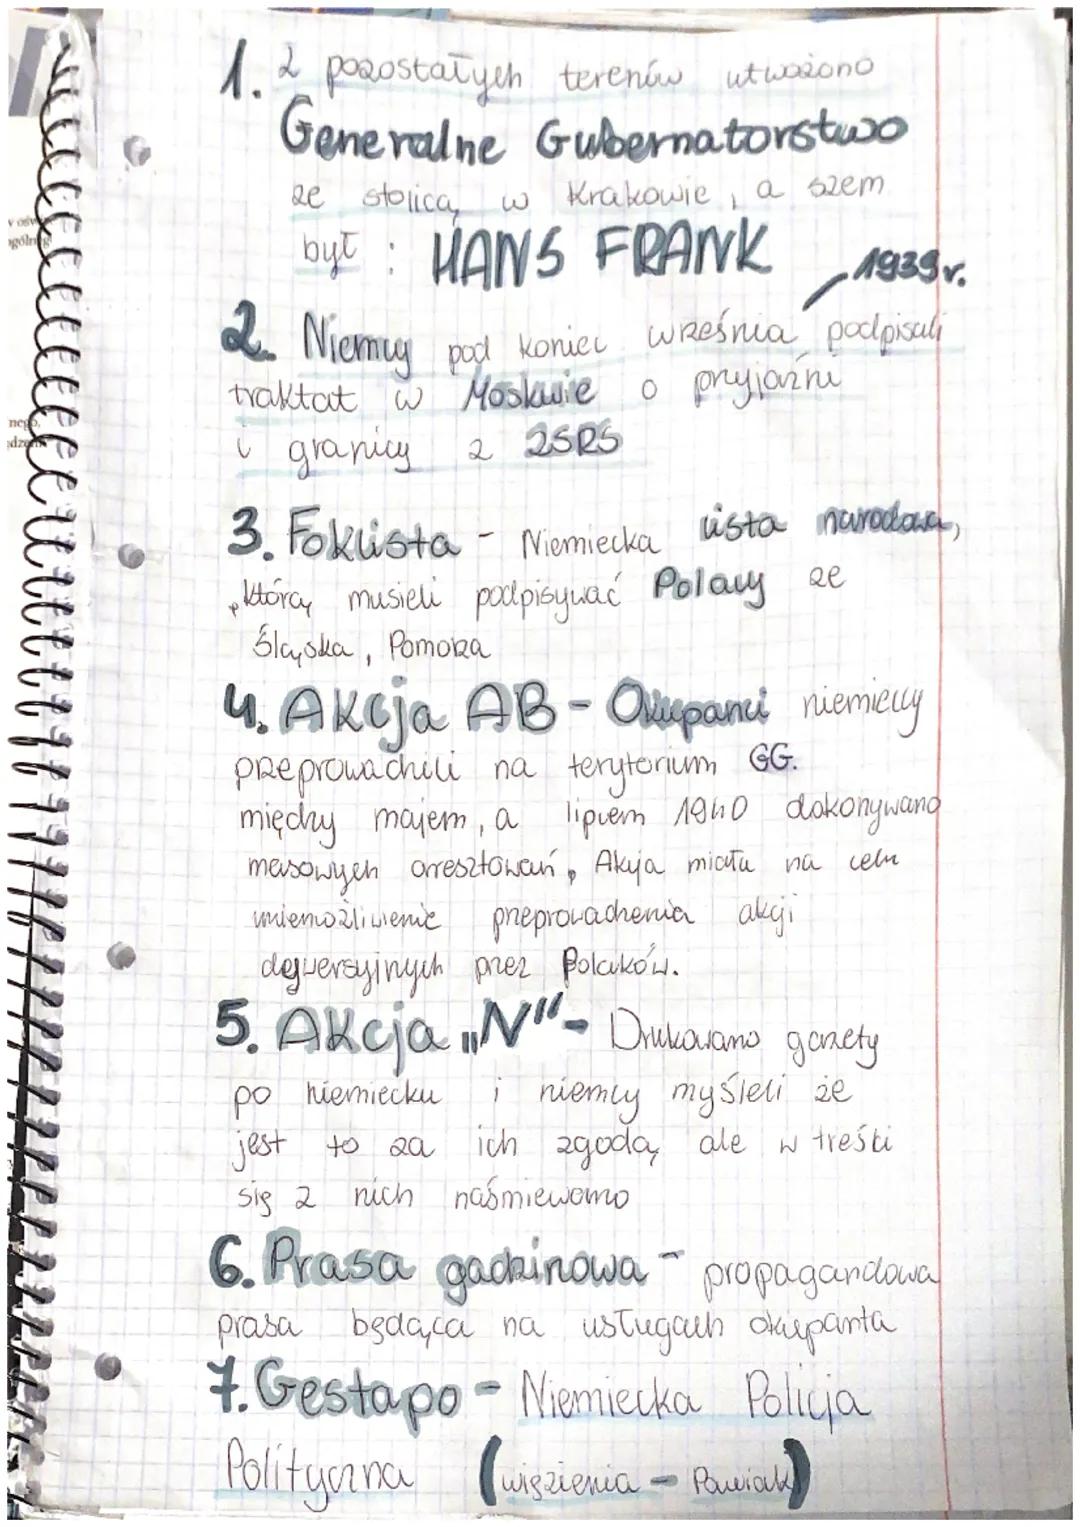 1. Z pozostałych terenów utworzono
Generalne Gubernatorstwo
ze stolicą w Krakowie, a szem
był : HANS FRANK
1939r.
2. Niemcy pod koniec września podpisali
traktat w Moskwie o przyjaźni
i granicy z ZSRS
3. Foklista - Niemiecka lista narodowa,
którą musieli podpisywać Polacy ze
Śląska, Pomorza
4. Akcja AB - Okupanci niemieccy
przeprowadzili na terytorium GG.
między majem, a lipcem 1940 dokonywano
masowych aresztowań, Akcja miała na celu
uniemożliwienie przeprowadzenia akcji
dywersyjnych przez Polaków.
5. Akcja „N" - Drukowano gazety
po niemiecku i niemcy myśleli że
jest to za ich zgodą, ale w treści
się z nich naśmiewano
6. Prasa gadzinowa - propagandowa
prasa będąca na usługach okupanta
7. Gestapo - Niemiecka Policja
Polityczna (więzienia - Pawiak)